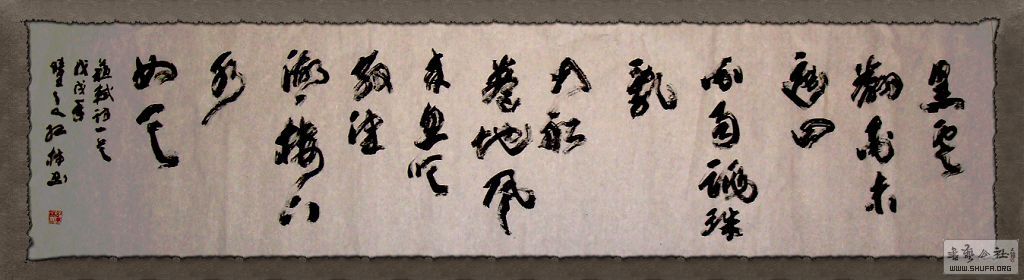 黑雲
翻墨未
遮山
白雨跳珠
亂
入船
卷地風
來忽吹
散望
湖樓下
水
如天
蘇軾詩一首
戊戌年
书法公社
WWW.SHUFA.ORG